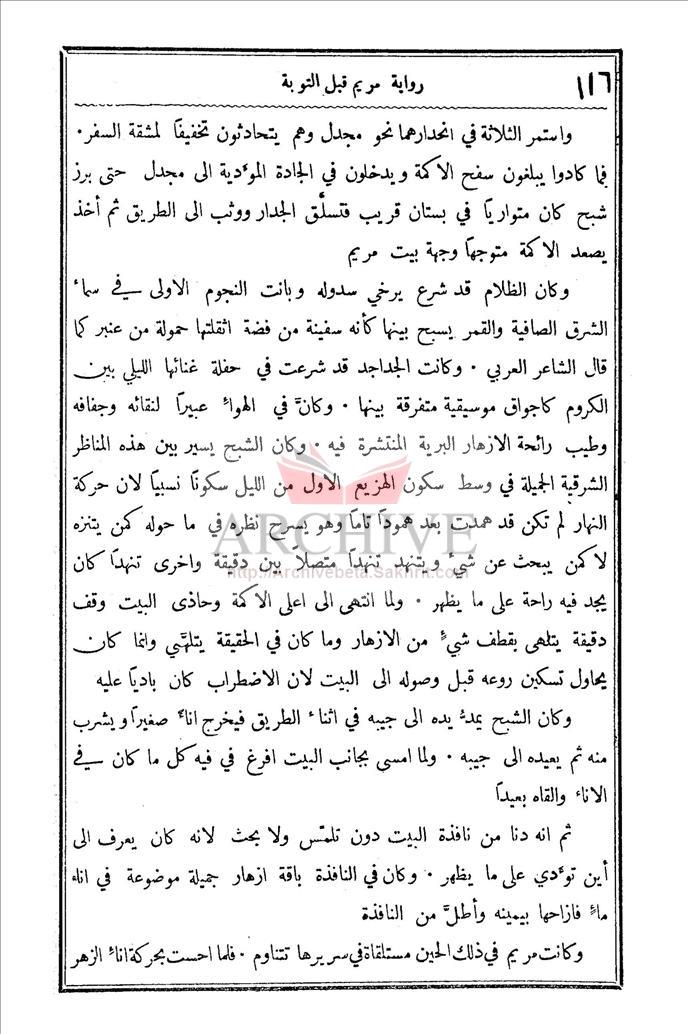 ١١٦
رواية مريم قبل التوبة
واستمر الثلاثة في انحدارهما نحو مجدل وهم يتحادثون تخفيفًا لمشقة السفر.
فما كادوا يبلغون سفح الاكمة ويدخلون في الجادة المؤدية الى مجدل حتى برز
شبح كان متواريًا في بستان قريب فتسلَّق الجدار ووثب الى الطريق ثم أخذ
يصعد الاكمة متوجهًا وجهة بيت مريم
وكان الظلام قد شرع يرخي سدوله وبانت النجوم الاولى في سماء
الشرق الصافية والقمر يسبح بينها كأنه سفينة من فضة اثقلتها حمولة من عنبر كما
قال الشاعر العربي . وكانت الجداجد قد شرعت في حفلة غنائها الليلي بين
الكروم كاجواق موسيقية متفرقة بينها . وكانَّ في الهواء عبيرًا لنقائه وجفافه
وطيب رائحة الازهار البرية المنتشرة فيه . وكان الشبح يسير بين هذه المناظر
الشرقية الجميلة في وسط سكون الهزيع الاول من الليل سكونًا نسبيًا لان حركة
النهار لم تكن قد همدت بعد همودًا تامًا وهو يسرح نظره في ما حوله كمن يتنزه
لا كمن يبحث عن شيء ويتنهد تنهدًا متصلًا بين دقيقة واخرى تنهدًا كان
يجد فيه راحة على ما يظهر . ولما انتهى الى اعلى الاكمة وحاذى البيت وقف
دقيقة يتلهى بقطف شيءٍ من الازهار وما كان في الحقيقة يتلهَّى وانما كان
يحاول تسكين روعه قبل وصوله الى البيت لان الاضطراب كان باديًا عليه
وكان الشبح يمدُّ يده الى جيبه في اثناء الطريق فيخرج اناءً صغيرًا ويشرب
منه ثم يعيده الى جيبه . ولما امسى بجانب البيت افرغ في فيه كل ما كان في
الاناء والقاه بعيدًا
ثم انه دنا من نافذة البيت دون تلمّس ولا بحث لانه كان يعرف الى
أين تؤدي على ما يظهر . وكان في النافذة باقة ازهار جميلة موضوعة في اناء
ماءٍ فازاحها بيمينه وأطلَّ من النافذة
وكانت مريم في ذلك الحين مستلقاة في سريرها تتناوم . فلما احست بحركة اناء الزهر
ARCHIVE
http://Archivebeta.Sakhrit.com